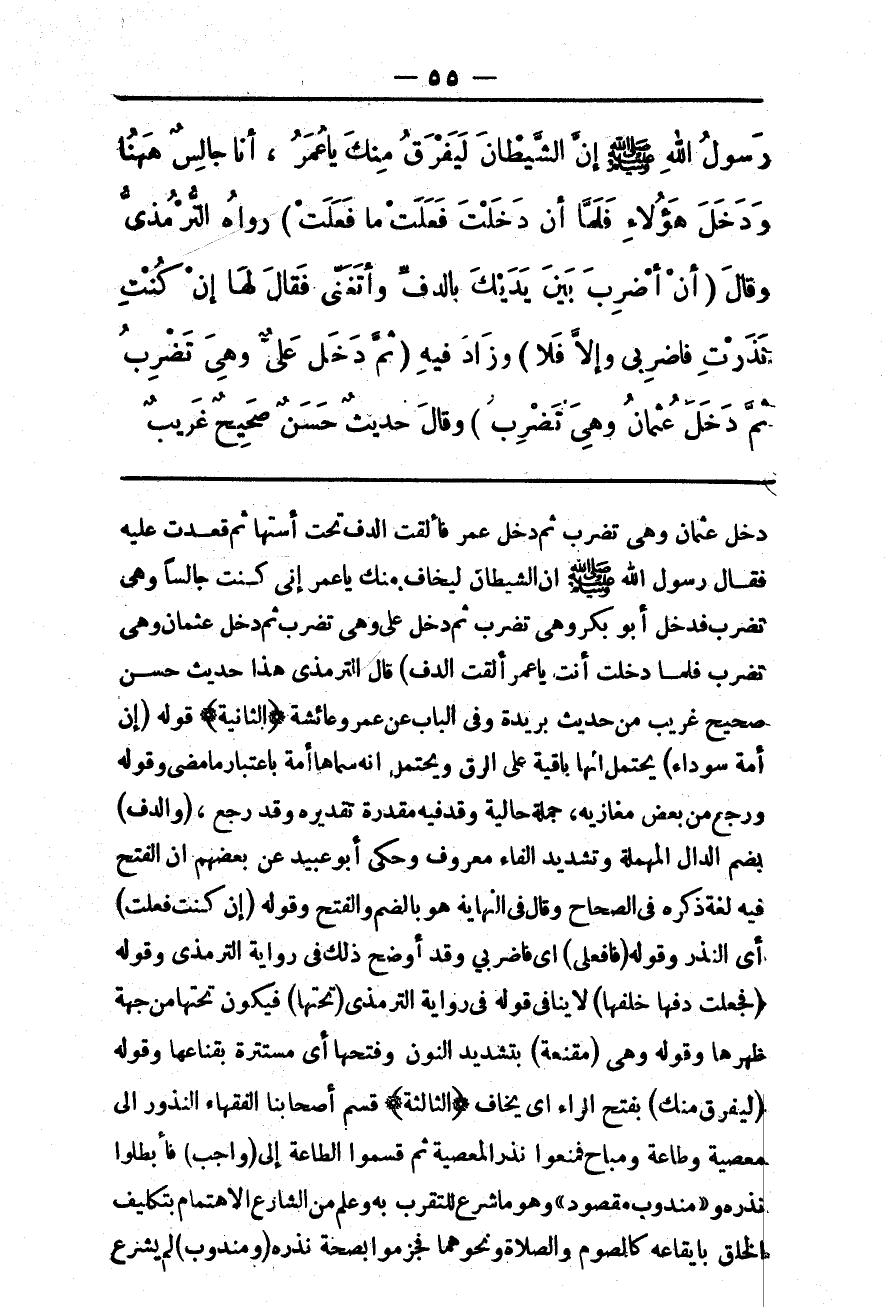 — ٥٥ —
رَسولُ اللهِ ﷺ إنَّ الشَّيْطانَ لَيَفْرَقُ مِنكَ ياعُمَرُ ، أنا جالِسٌ هَهُنا
وَدَخَلَ هَؤُلاءِ فَلَمَّا أن دَخَلْتَ فَعَلَتْ ما فَعَلَتْ ) رواهُ التِّرْمُذىُّ
وقالَ ( أنْ أضْرِبَ بَيْنَ يَدَيْكَ بالدفِّ وأتَغَنَّى فَقالَ لَهَا إنْ كُنْتِ
نَذَرْتِ فاضرِبى وإلاَّ فَلا ) وزَادَ فيهِ ( ثمَّ دَخَلَ عَلىٌّ وهِىَ تَضْرِبُ
ثمَّ دَخَلَ عُثمانُ وهِىَ تَضْرِبُ ) وقالَ حديثٌ حَسَنٌ صَحِيحٌ غَريبٌ
دخل عثمان وهى تضرب ثم دخل عمر فألقت الدف تحت أستها ثم قعدت عليه
فقال رسول الله ﷺ ان الشيطان ليخاف منك ياعمر إنى كنت جالساً وهى
تضرب فدخل أبو بكر وهى تضرب ثم دخل على وهى تضرب ثم دخل عثمان وهى
تضرب فلما دخلت أنت ياعمر ألقت الدف ) قال الترمذى هذا حديث حسن
صحيح غريب من حديث بريدة وفى الباب عن عمر وعائشة ﴿الثانية﴾ قوله (إن
أمة سوداء) يحتمل انها باقية على الرق ويحتمل انه سماها أمة باعتبار ما مضى وقوله
ورجع من بعض مغازيه، جملة حالية وقد فيه مقدرة تقديره وقد رجع ، (والدف)
بضم الدال المهملة وتشديد الفاء معروف وحكى أبو عبيد عن بعضهم ان الفتح
فيه لغة ذكره فى الصحاح وقال فى النهاية هو بالضم والفتح وقوله (إن كنت فعلت)
أى النذر وقوله (فافعلى) اى فاضربي وقد أوضح ذلك فى رواية الترمذى وقوله
(فجعلت دفها خلفها) لا ينافى قوله فى رواية الترمذى (تحتها) فيكون تحتها من جهة
ظهرها وقوله وهى (مقنعة) بتشديد النون وفتحها أى مستترة بقناعها وقوله
(ليفرق منك) بفتح الراء اى يخاف ﴿الثالثة﴾ قسم أصحابنا الفقهاء النذور الى
معصية وطاعة ومباح فمنعوا نذر المعصية ثم قسموا الطاعة إلى (واجب) فأبطلوا
نذره و«مندوب مقصود» وهو ما شرع للتقرب به وعلم من الشارع الاهتمام بتكليف
الخلق بايقاعه كالصوم والصلاة ونحوهما فجزموا بصحة نذره (ومندوب) لم يشرع